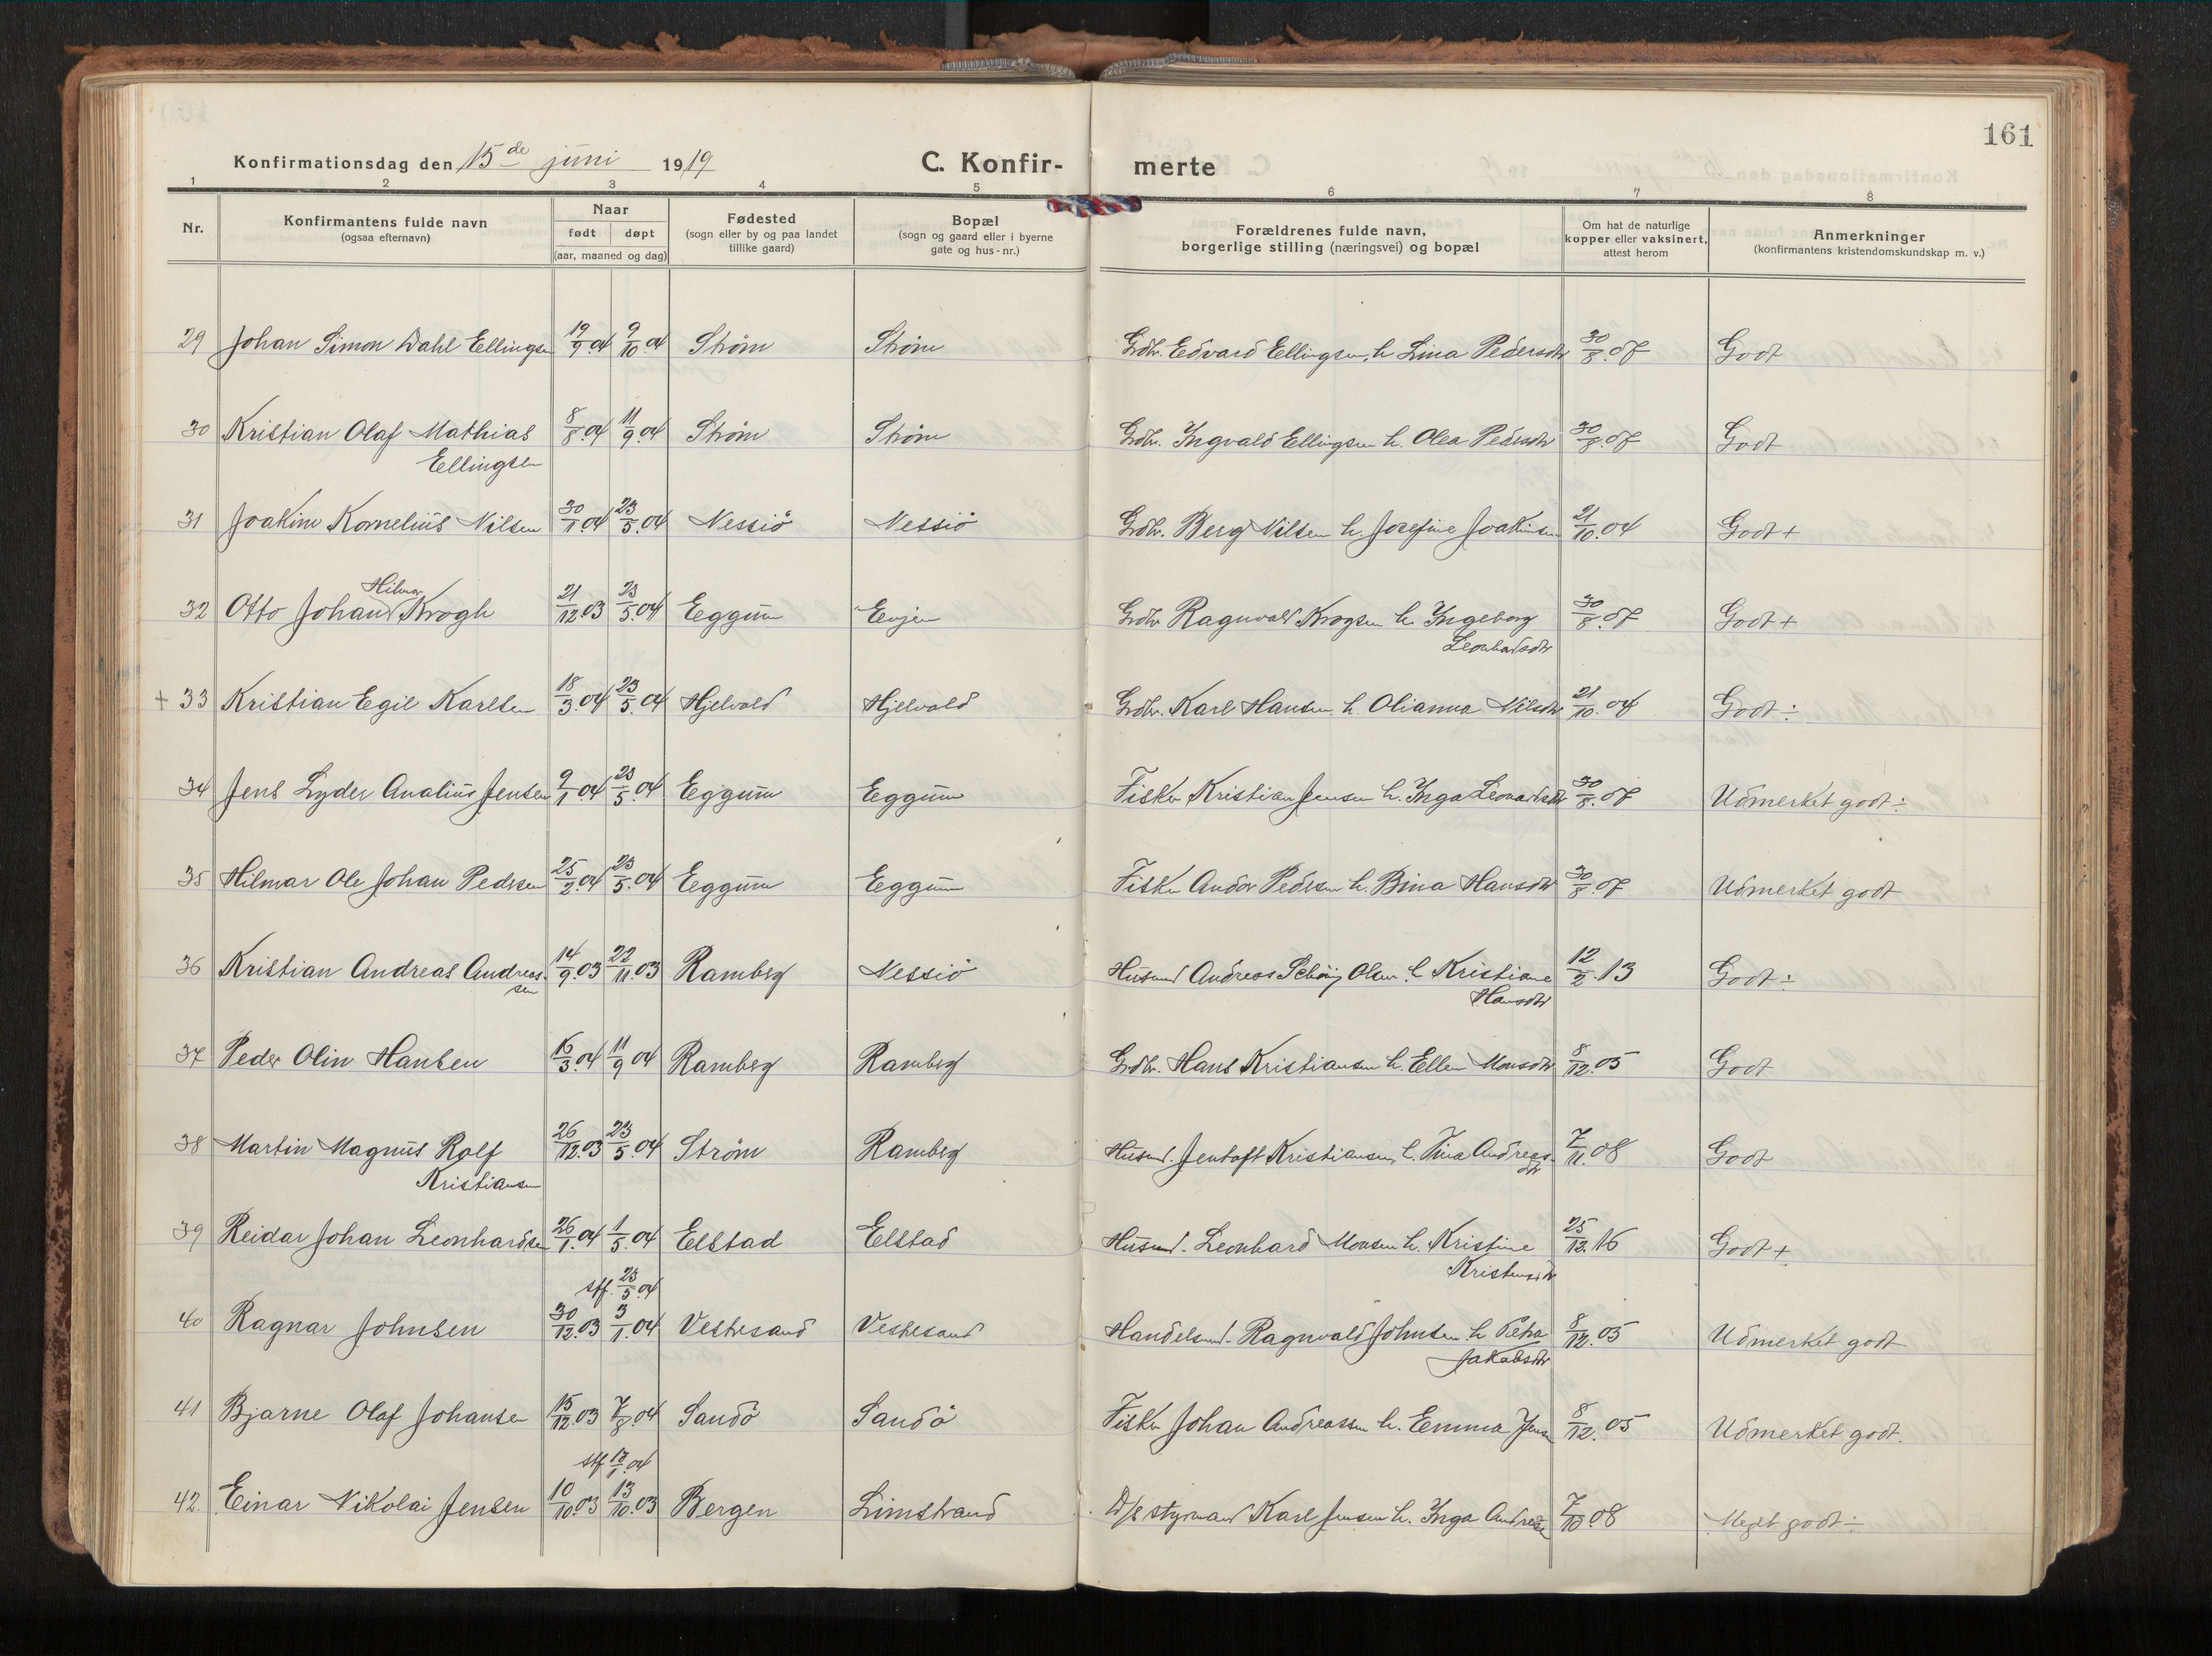 161
Konfirmationsdag den 15de juni 1919 C. Konfirmerte
1 2 3 4 5 6 7 8
Nr. Konfirmantens fulde navn (ogsaa efternavn) Naar født døpt (aar, maaned og dag) Fødested (sogn eller by og paa landet tillike gaard) Bopæl (sogn og gaard eller i byerne gate og hus-nr.) Forældrenes fulde navn, borgerlige stilling (næringsvei) og bopæl Om hat de naturlige kopper eller vaksinert, attest herom Anmerkninger (konfirmantens kristendomskundskap m. v.)
29 Johan Simon Dahl Ellingsen 19/9.04 9/10.04 Strøm Strøm Grdbr. Edvard Ellingsen h. Lina Pedersdtr 30/8.07 Godt
30 Kristian Olaf Mathias 8/8.04 11/9.04 Strøm Strøm Grdbr. Ingvald Ellingsen h. Olea Pedersdtr 30/8.07 Godt
Ellingsen
31 Joakim Kornelius Nilsen 30/1.04 23/5.04 Nessiö Nessiö Grdbr. Berg Nilsen h. Josefine Joakimsen 21/10.04 Godt +
Hilmar
32 Otto Johan Krogh 21/12.03 23/5.04 Eggum Evjen Grdbr Ragnvald Krogsen h. Ingeborg 30/8.07 Godt +
Leonhardsdtr
+ 33 Kristian Egil Karlsen 18/3.04 23/5.04 Hjelvold Hjelvold Grdbr. Karl Hansen h. Olianna Nilsdtr 21/10.04 Godt ÷
34 Jens Lyder Analius Jensen 9/1.04 23/5.04 Eggum Eggum Fisker Kristian Jensen h. Inga Leonardsdtr 30/8.07 Udmerket godt ÷
35 Hilmar Ole Johan Pedersen 25/2.04 23/5.04 Eggum Eggum Fisker Andor Pedersen h. Bina Hansdtr 30/8.07 Udmerket godt
36 Kristian Andreas Andreas- 14/9.03 22/11.03 Ramberg Nessiö Husmd Andreas Schöning Olsen h. Kristiane 12/2.13 Godt ÷
sen Hansdtr
37 Peder Olin Hansen 16/3.04 11/9 04 Ramberg Ramberg Grdbr. Hans Kristiansen h. Ellen Monsdtr 8/12.05 Godt
38 Martin Magnus Rolf 26/12.03 23/5.04 Strøm Ramberg Husmd. Jentoft Kristiansen h. Tina Andreas- 7/11.08 Godt
Kristiansen dtr
39 Reidar Johan Leonhardsen 26/1.04 1/5.04 Elstad Elstad Husmd. Leonhard Monsen h. Kristine 25/12.16 Godt +
stf. 23/5.04 Kristensdtr
40 Ragnar Johnsen 30/12.03 3/1.04 Vestresand Vestresand Handelsmd. Ragnvald Johnsen h. Petra 8/12.05 Udmerket godt
Jakobsdtr
41 Bjarne Olaf Johansen 15/12.03 7/8.04 Sandö Sandö Fisker Johan Andreassen h. Emma Jensen 8/12.05 Udmerket godt.
stf 17/1.04
42. Einar Nikolai Jensen 10/10.03 13/10.03 Bergen Limstrand D/s styrmand Karl Jensen h. Inga Andreasen 7/10.08 Meget godt ÷